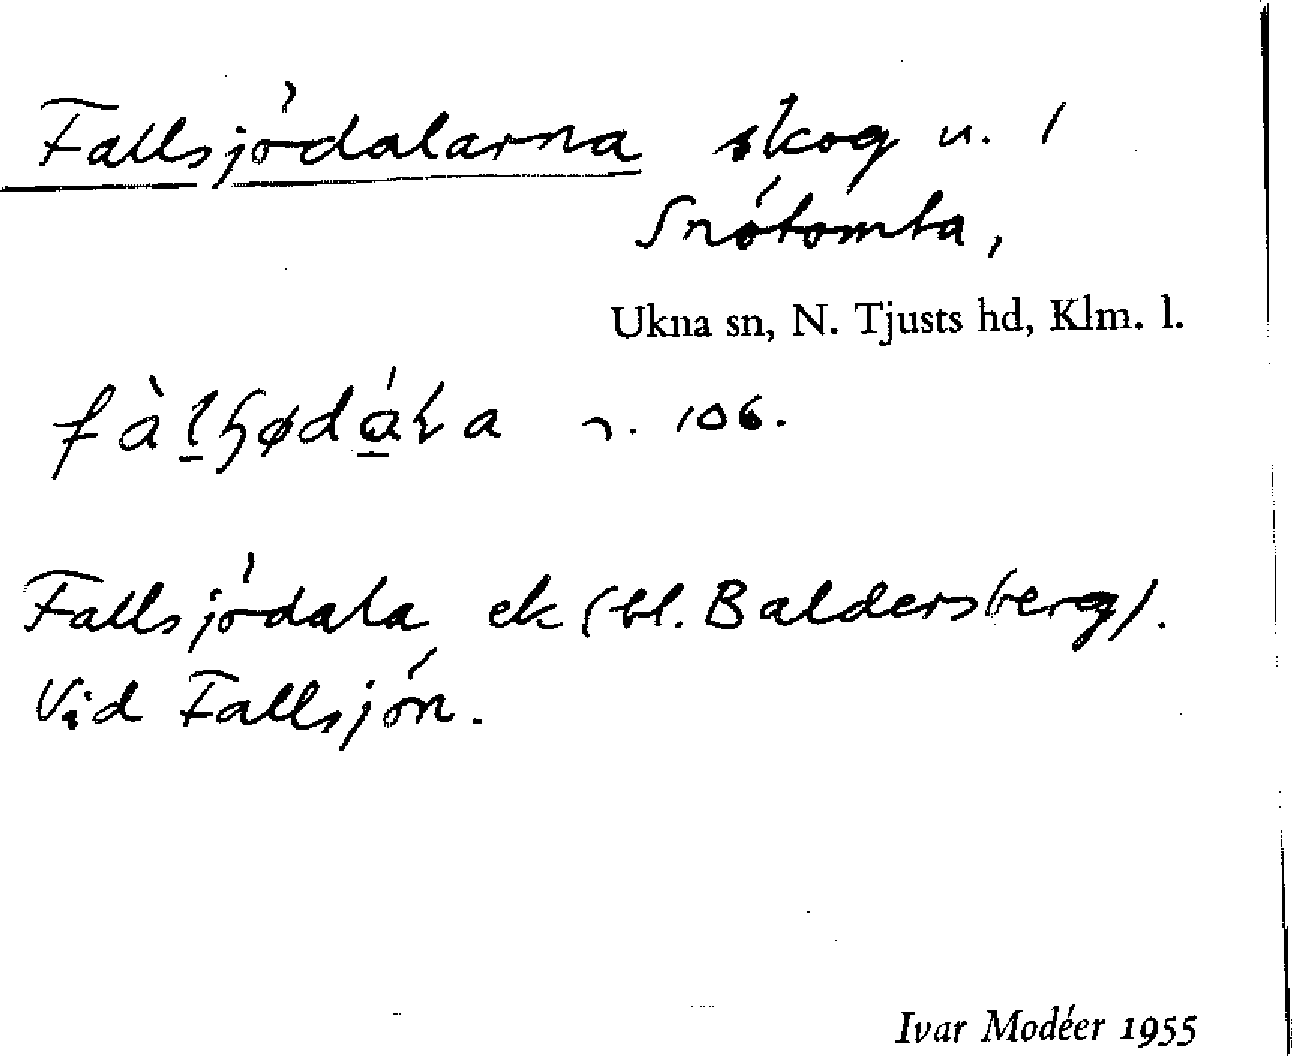 Fallsjödalarna skog u. /
Snötomta,
Ukna sn, N. Tjusts hd, Klm. l.
106.
Fallsjödala ek (bl. Baldersberg).
Vid Fallsjön.
Ivar Modéer 1955